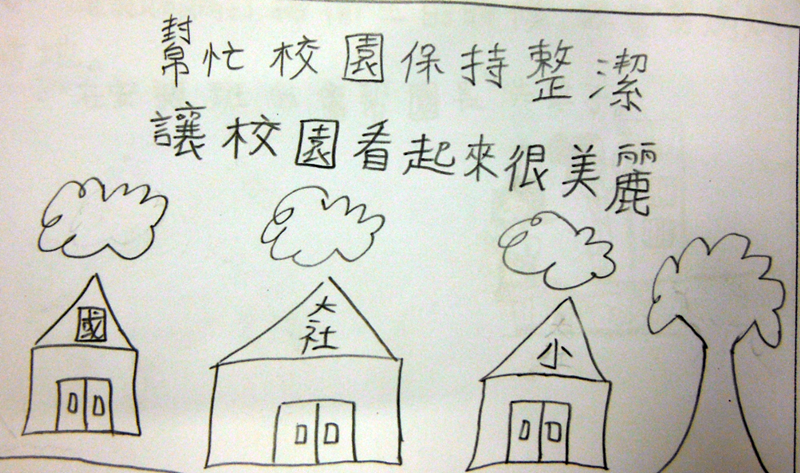 幫忙校園保持整潔
讓校園看起來很美麗
國
大社
小